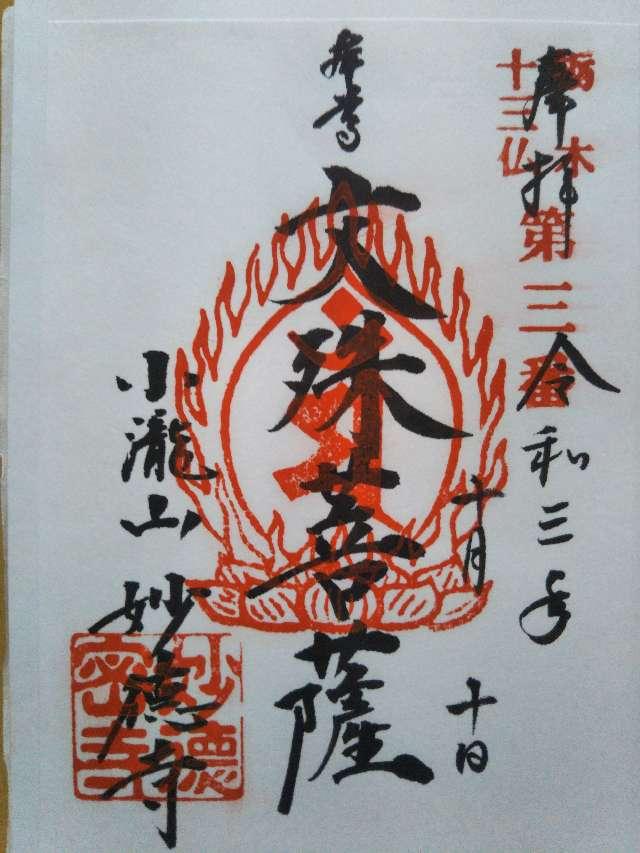 栃木
十三仏
第三番
奉拝
令和三年
十月
十日
本尊
文殊菩薩
小瀧山
妙徳寺
妙徳
密寺